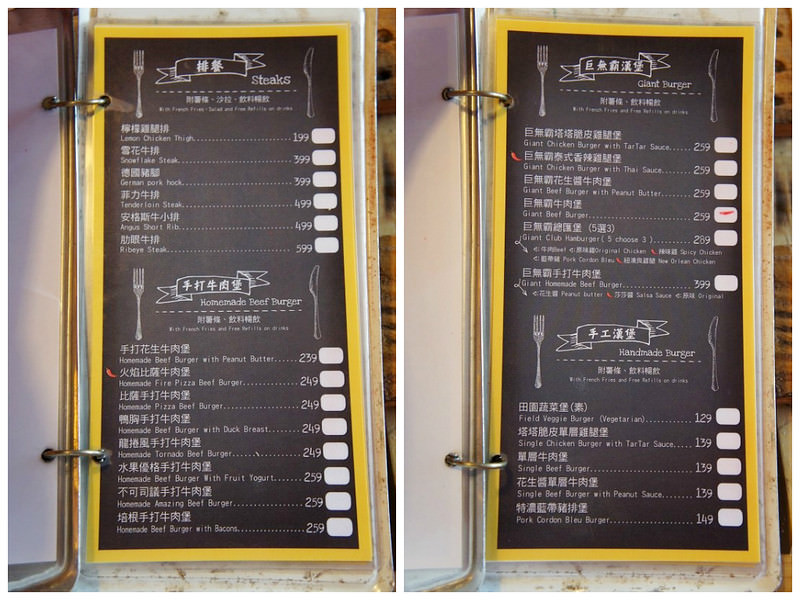 排餐
Steaks
附薯條、沙拉、飲料暢飲
With French Fries、Salad and Free Refills on drinks
檸檬雞腿排
Lemon Chicken Thigh 199
雪花牛排
Snowflake Steak 399
德國豬腳
German pork hock 399
菲力牛排
Tenderloin Steak 499
安格斯牛小排
Angus Short Rib 499
肋眼牛排
Ribeye Steak 599
手打牛肉堡
Homemade Beef Burger
附薯條、飲料暢飲
With French Fries and Free Refills on drinks
手打花生牛肉堡
Homemade Beef Burger with Peanut Butter 239
火焰比薩牛肉堡
Homemade Fire Pizza Beef Burger 249
比薩手打牛肉堡
Homemade Pizza Beef Burger 249
鴨胸手打牛肉堡
Homemade Beef Burger with Duck Breast 249
龍捲風手打牛肉堡
Homemade Tornado Beef Burger 249
水果優格手打牛肉堡
Homemade Beef Burger With Fruit Yogurt 259
不可司議手打牛肉堡
Homemade Amazing Beef Burger 259
培根手打牛肉堡
Homemade Beef Burger with Bacons 259
巨無霸漢堡
Giant Burger
附薯條、飲料暢飲
With French Fries and Free Refills on drinks
巨無霸塔塔脆皮雞腿堡
Giant Chicken Burger with TarTar Sauce 259
巨無霸泰式香辣雞腿堡
Giant Chicken Burger with Thai Sauce 259
巨無霸花生醬牛肉堡
Giant Beef Burger with Peanut Butter 259
巨無霸牛肉堡
Giant Beef Burger 259
巨無霸總匯堡 (5選3)
Giant Club Hamburger( 5 choose 3 ) 289
牛肉Beef 原味雞Original Chicken 辣味雞 Spicy Chicken
藍帶豬 Pork Cordon Bleu 紐澳良雞腿 New Orlean Chicken
巨無霸手打牛肉堡
Giant Homemade Beef Burger 399
花生醬 Peanut butter 莎莎醬 Salsa Sauce 原味 Original
手工漢堡
Handmade Burger
附薯條、飲料暢飲
With French Fries and Free Refills on drinks
田園蔬菜堡(素)
Field Veggie Burger (Vegetarian) 129
塔塔脆皮單層雞腿堡
Single Chicken Burger with TarTar Sauce 139
單層牛肉堡
Single Beef Burger 139
花生醬單層牛肉堡
Single Beef Burger with Peanut Sauce 139
特濃藍帶豬排堡
Pork Cordon Bleu Burger 149